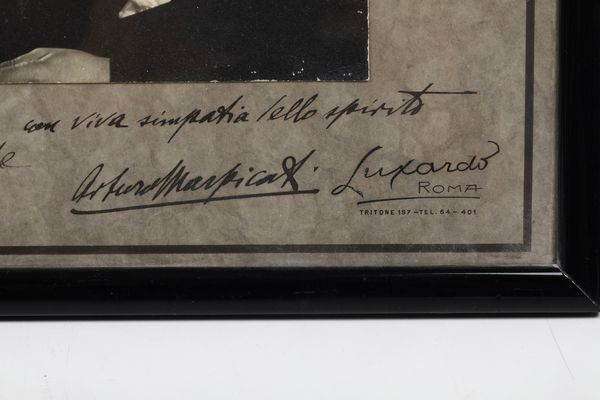 con viva simpatia dello spirito
Arturo Marpicati.
Luxardo
ROMA
TRITONE 197-TEL. 64-401